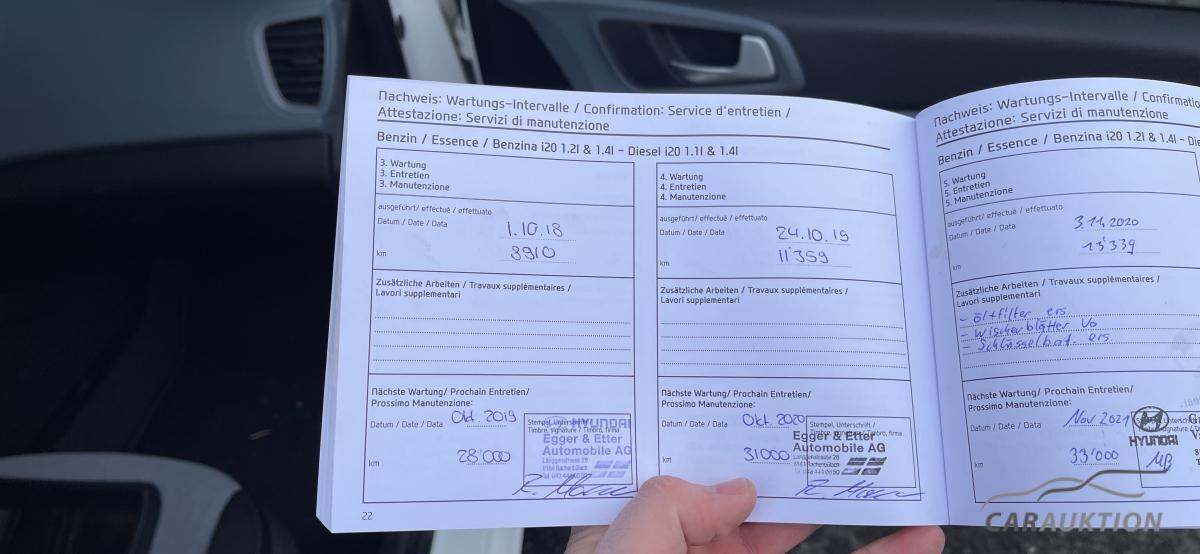 Nachweis: Wartungs-Intervalle / Confirmation: Service d'entretien /
Attestazione: Servizi di manutenzione
Benzin / Essence / Benzina i20 1.2l & 1.4l – Diesel i20 1.1l & 1.4l
3. Wartung
3. Entretien
3. Manutenzione
ausgeführt/ effectué / effettuato
Datum / Date / Data 1.10.18
km 8910
Zusätzliche Arbeiten / Travaux supplémentaires /
Lavori supplementari
Nächste Wartung/ Prochain Entretien/
Prossimo Manutenzione:
Datum / Date / Data Okt. 2019
km 28'000
Stempel, Unterschrift /
Timbre, signature / Timbro, firma
HYUNDAI
Egger & Etter
Automobile AG
22
4. Wartung
4. Entretien
4. Manutenzione
ausgeführt/ effectué / effettuato
Datum / Date / Data 24.10.19
km 11'359
Zusätzliche Arbeiten / Travaux supplémentaires /
Lavori supplementari
Nächste Wartung/ Prochain Entretien/
Prossimo Manutenzione:
Datum / Date / Data Okt. 2020
km 31000
Stempel, Unterschrift /
Timbre, signature / Timbro, firma
Egger & Etter
Automobile AG
Nachweis: Wartungs-Intervalle / Confirmatio
Attestazione: Servizi di manutenzione
Benzin / Essence / Benzina i20 1.2l & 1.4l – Die
5. Wartung
5. Entretien
5. Manutenzione
ausgeführt/ effectué / effettuato
Datum / Date / Data 3.11.2020
km 13'339
Zusätzliche Arbeiten / Travaux supplémentaires /
Lavori supplementari
- ölfilter ers.
- Wischerblätter Vo
- Schlüsselbat. ers.
Nächste Wartung/ Prochain Entretien/
Prossimo Manutenzione:
Datum / Date / Data Nov 2021
km 33'000
HYUNDAI
CARAUKTION